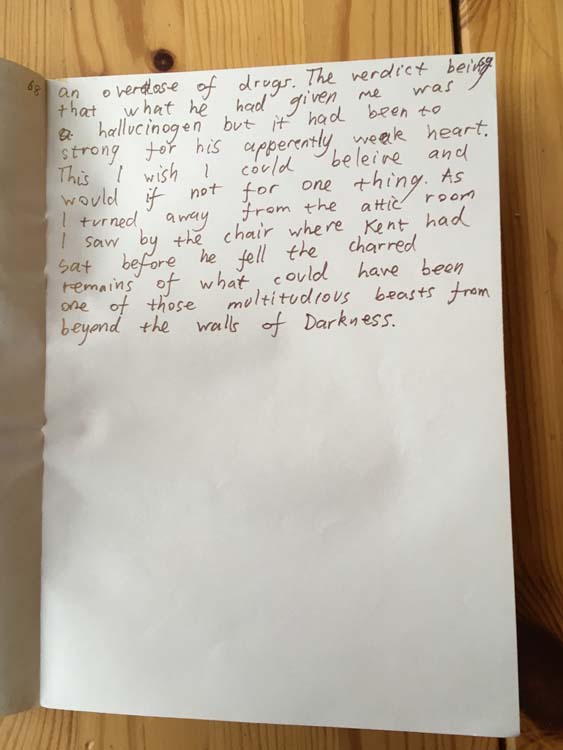 68
69
an overdose of drugs. The verdict being
that what he had given me was
a hallucinogen but it had been to
strong for his apperently weak heart.
This I wish I could beleive and
would if not for one thing. As
I turned away from the attic room
I saw by the chair where Kent had
sat before he fell the charred
remains of what could have been
one of those multitudious beasts from
beyond the walls of Darkness.